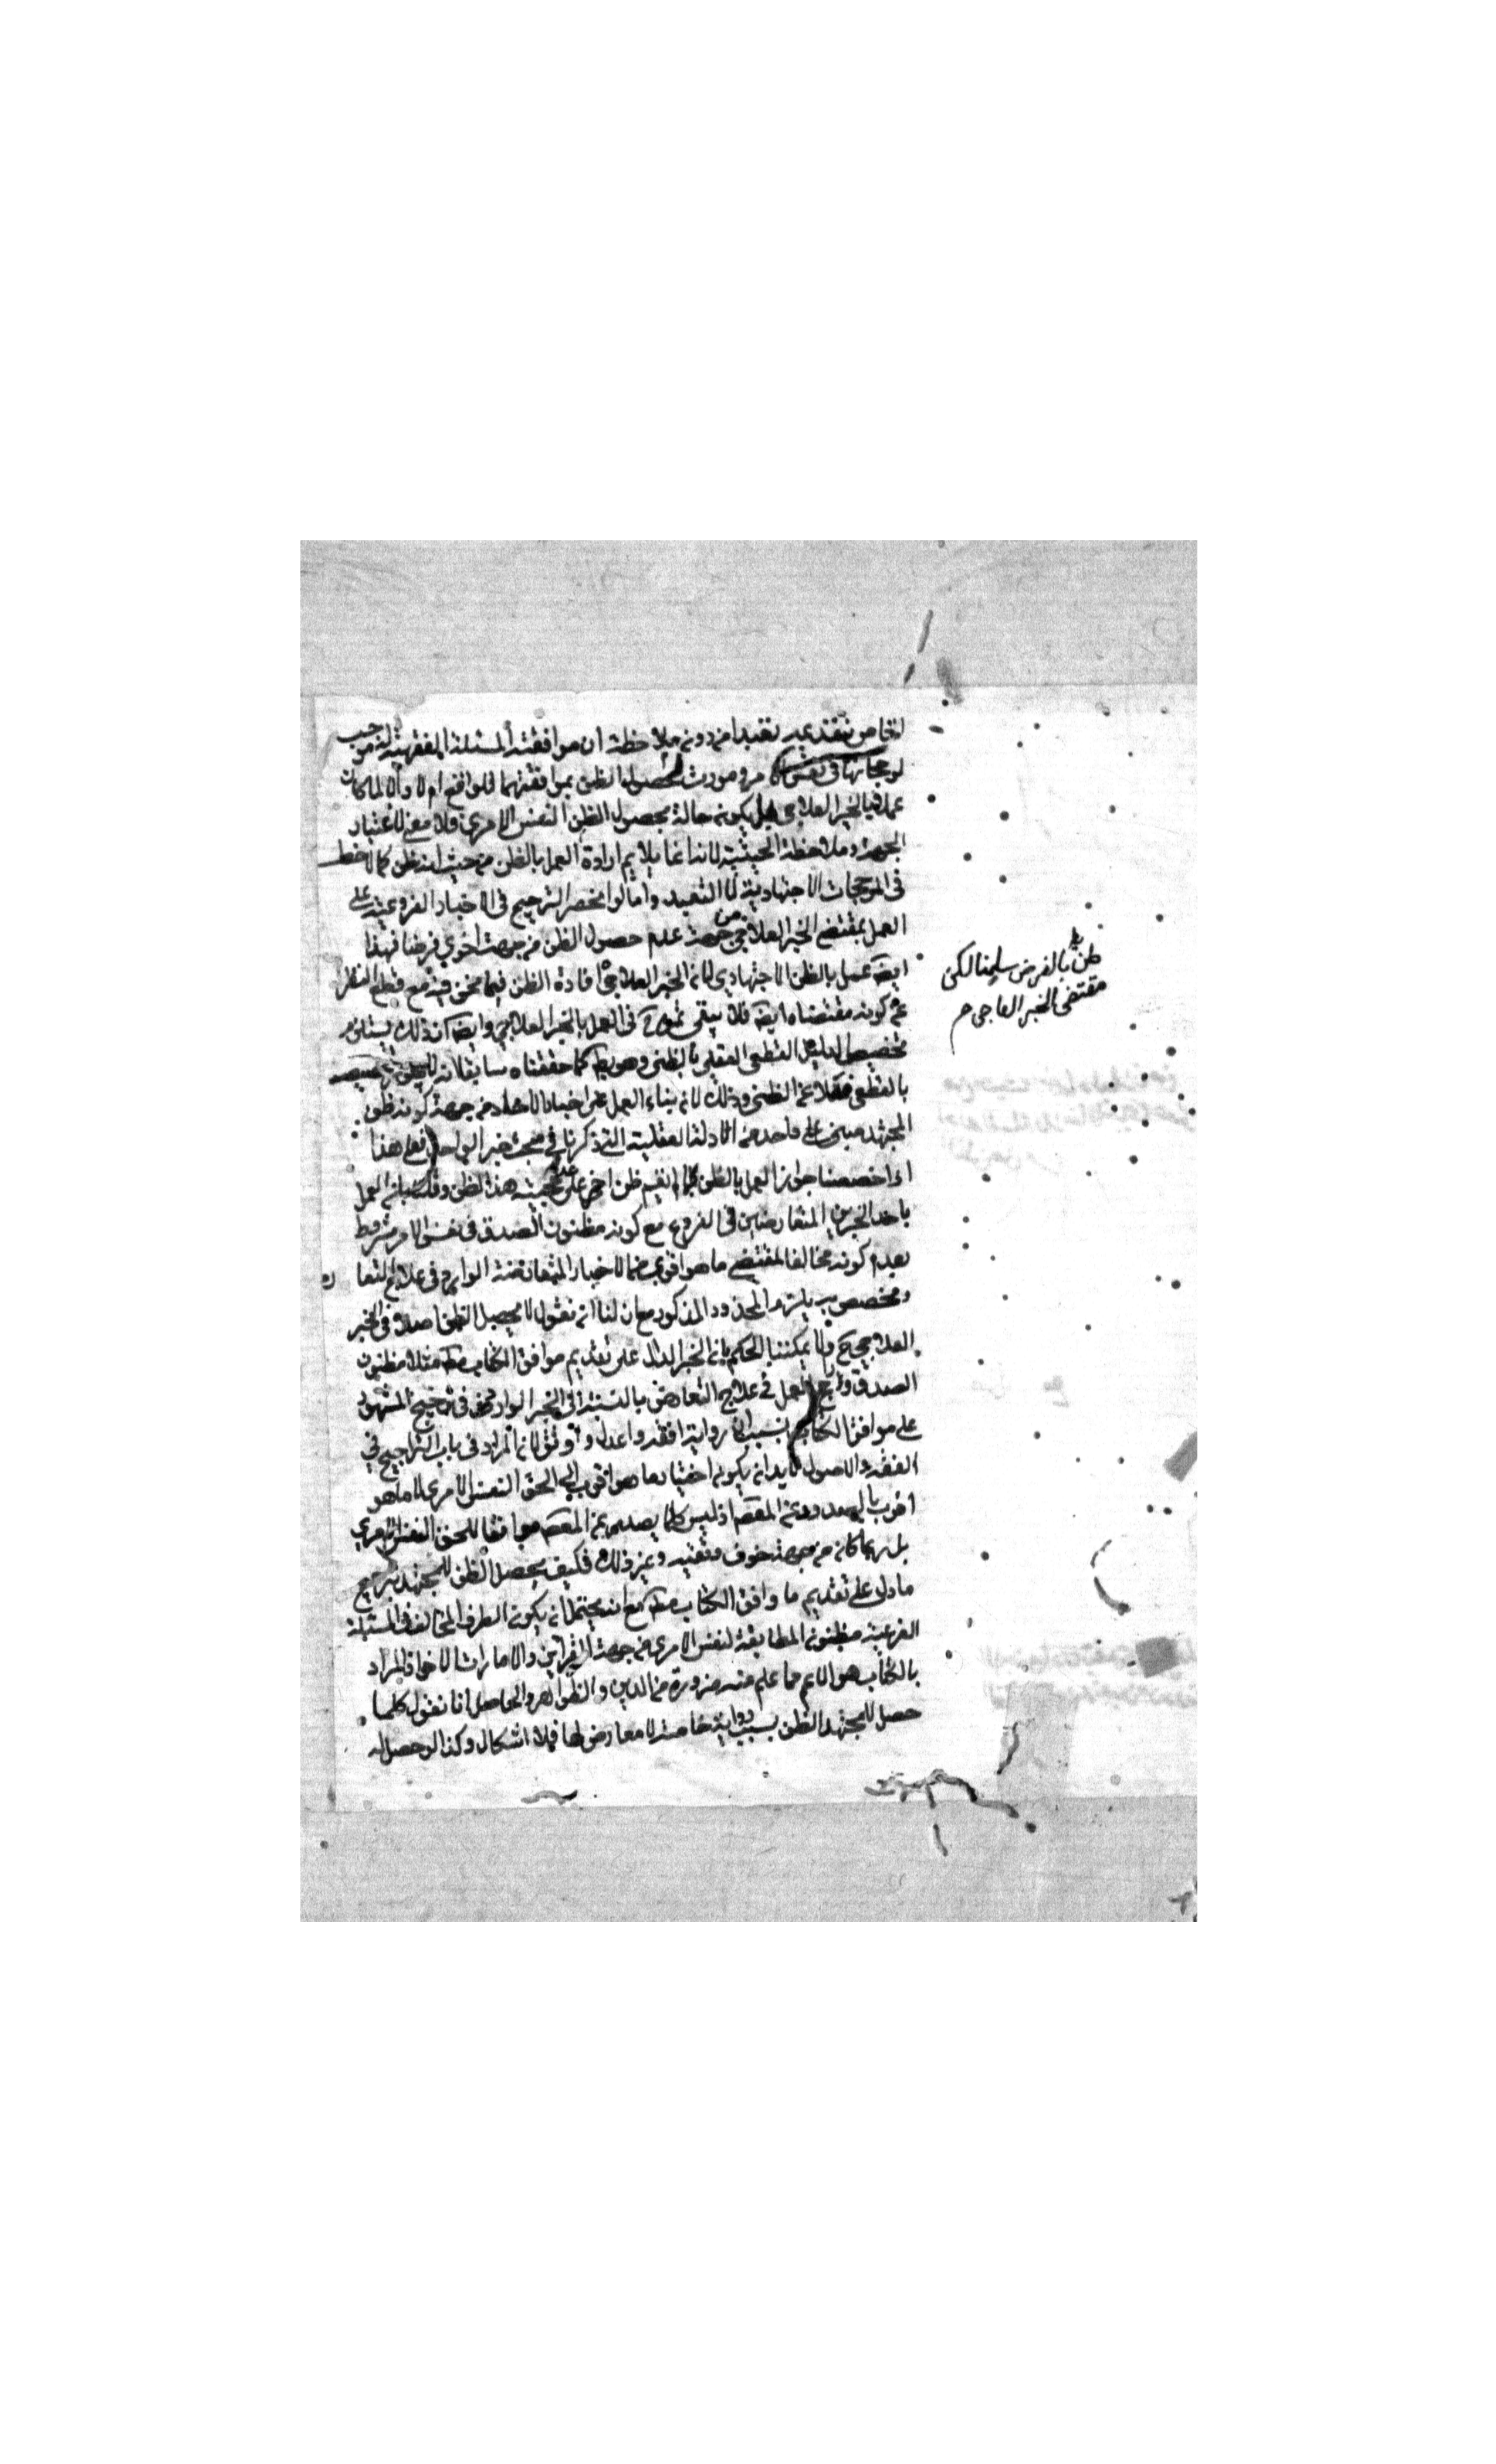 الخاص بتقديمه تعبدا من دون ملاحظة ان موافقته المسئلة الفقهية موجب
لرجحانها في نفس الامر ومورث لحصول الظن بموافقتهما للواقع ام لا والا لما كان
عملا بالخبر العلاجي بل يكون حاله بحصول الظن النفس الامري فلا معنى لاعتبار
الجهة وملاحظة الحيثية لانه انما يلايم ارادة العمل بالظن من حيث انه ظن كما لاحظ
في المرجحات الاجتهادية لا التعبد واما لو انحصر الترجيح في الاخبار الفروعية على
العمل بمقتضى الخبر العلاجي من جهة عدم حصول الظن من جهة اخرى فرضنا فهذا
ايضا عمل بالظن الاجتهادي لان الخبر العلاجي افادة الظن فيما نحن فيه مع قطع النظر
عن كونه مقتضاه ايضا فلا يبقى ثمرة في العمل بالخبر العلاجي وايضا ذلك يستلزم
تخصيص الدليل القطعي العقلي بالظني وهو بط كما حققناه سابقا لانه
بالقطعي فضلا عن الظني وذلك لان بناء العمل على اخبار الاحاد من جهة كونه ظن
المجتهد مبني على واحد من الادلة العقلية التي ذكرنا في مبحث خبر الواحد فعلى هذا
اذا خصصنا جواز العمل بالظن بما لم يقم ظن اخر على عدم حجية هذا الظن وقلت بان العمل
باحد الخبرين المتعارضين في الفروع مع كونه مظنون الصدق في نفس الامر مشروط
بعدم كونه مخالفا لمقتضى ما هو اقوى من الاخبار المتعارضة الواردة في علاج التعارض
ومخصص به يلزم المحذور المذكور مع ان لنا ان نقول لا يحصل الظن اصلا في الخبر
العلاجي ولا يمكننا الحكم بان الخبر الدال على تقديم موافق الكتاب مط مثلا مظنون
الصدق وراجح العمل في علاج التعارض بالنسبة الى الخبر الوارد في ترجيح المشهور
على موافق الكتاب بسبب ان رواية افقه واعدل واوثق لان المراد في باب التراجيح في
الفقه والاصول لابد ان يكون اختيار ما هو اقرب الى الحق النفس الامري لا ما هو
اقرب بالصدور عن المعصوم اذ ليس كلما يصدر عن المعصوم موافقا للحق النفس الامري
بل ربما كان من جهة خوف وتقية وغير ذلك فكيف يحصل الظن للمجتهد بترجيح
ما دل على تقديم ما وافق الكتاب مط مع انه يحتمل ان يكون الطرف المخالف في المسئلة
الفرعية مظنون المطابقة لنفس الامر من جهة القراين والامارات الاخر اذ المراد
بالكتاب هو الاعم مما علم منه ضرورة من الدين والظواهر والحاصل انا نقول كلما
حصل للمجتهد الظن بسبب رواية خاصة لا معارض لها فلا اشكال وكذا لو حصل له
ظن بالفرض سلمنا لكن
مقتضى الخبر العلاجي